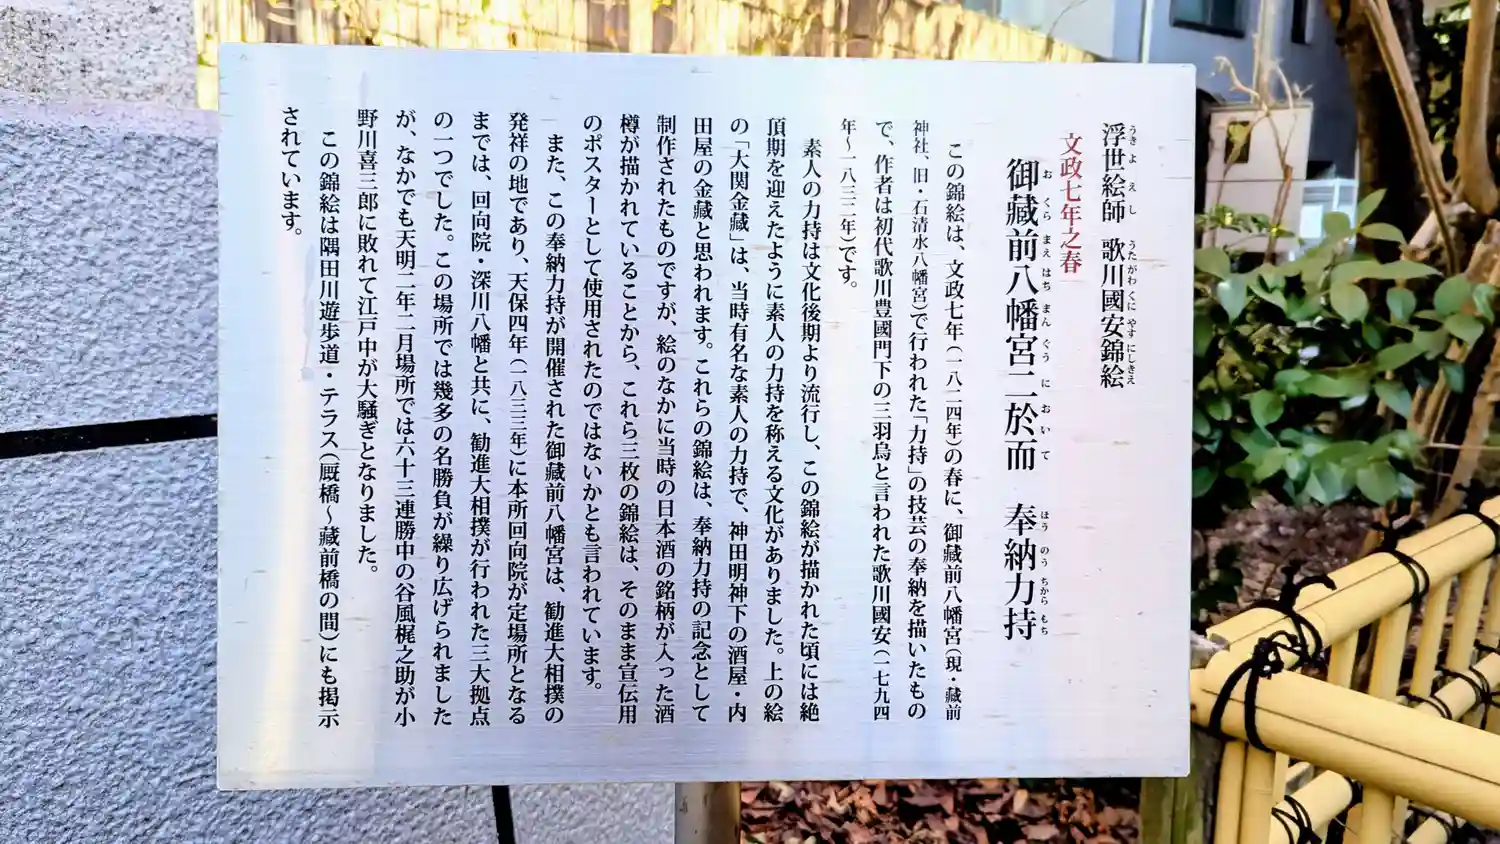 浮世絵師　歌川國安錦絵
文政七年之春
御藏前八幡宮二於而　奉納力持
この錦絵は、文政七年（一八二四年）の春に、御藏前八幡宮（現・藏前
神社、旧・石清水八幡宮）で行われた「力持」の技芸の奉納を描いたもの
で、作者は初代歌川豊國門下の三羽烏と言われた歌川國安（一七九四
年〜一八三二年）です。
素人の力持は文化後期より流行し、この錦絵が描かれた頃には絶
頂期を迎えたように素人の力持を称える文化がありました。上の絵
の「大関金藏」は、当時有名な素人の力持で、神田明神下の酒屋・内
田屋の金藏と思われます。これらの錦絵は、奉納力持の記念として
制作されたものですが、絵のなかに当時の日本酒の銘柄が入った酒
樽が描かれていることから、これら三枚の錦絵は、そのまま宣伝用
のポスターとして使用されたのではないかとも言われています。
また、この奉納力持が開催された御藏前八幡宮は、勧進大相撲の
発祥の地であり、天保四年（一八三三年）に本所回向院が定場所となる
までは、回向院・深川八幡と共に、勧進大相撲が行われた三大拠点
の一つでした。この場所では幾多の名勝負が繰り広げられました
が、なかでも天明二年二月場所では六十三連勝中の谷風梶之助が小
野川喜三郎に敗れて江戸中が大騒ぎとなりました。
この錦絵は隅田川遊歩道・テラス（厩橋〜蔵前橋の間）にも掲示
されています。